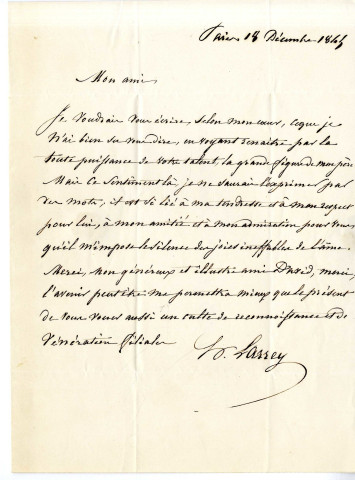 Paris 18 Décembre 1845
Mon ami
Je voudrais vous écrire, selon mon cœur, ce que je
n'ai bien su vous dire, en voyant renaitre par la
toute puissance de votre talent, la grande figure de mon père
Mais ce sentiment là, je ne saurais l'exprimer par
des mots, il est si lié à ma tendresse et à mon respect
pour lui, à mon amitié et à mon admiration pour vous
qu'il m'impose le silence des joies ineffables de l'âme.
Merci, mon généreux et illustre ami David, merci,
l'avenir peut être me permettra mieux que le présent
de vous vouer aussi un culte de reconnoissance et de
vénération filiales
H. Larrey